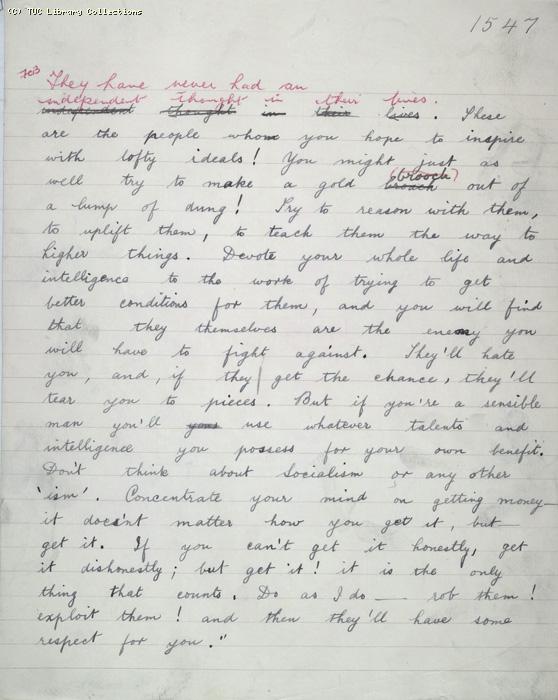 (C) TUC Library Collections
1547
703
They have never had an
independent thought in their lives.
independent thought in their lives. These
are the people whom you hope to inspire
with lofty ideals! You might just as
(brooch)
well try to make a gold broach out of
a lump of dung! Try to reason with them,
to uplift them, to teach them the way to
higher things. Devote your whole life and
intelligence to the work of trying to get
better conditions for them, and you will find
that they themselves are the enemy you
will have to fight against. They'll hate
you, and, if they get the chance, they'll
tear you to pieces. But if you're a sensible
man you'll your use whatever talents and
intelligence you possess for your own benefit.
Don't think about Socialism or any other
'ism'. Concentrate your mind on getting money—
it doesn't matter how you get it, but—
get it. If you can't get it honestly, get
it dishonestly; but get it! it is the only
thing that counts. Do as I do — rob them!
exploit them! and then they'll have some
respect for you."